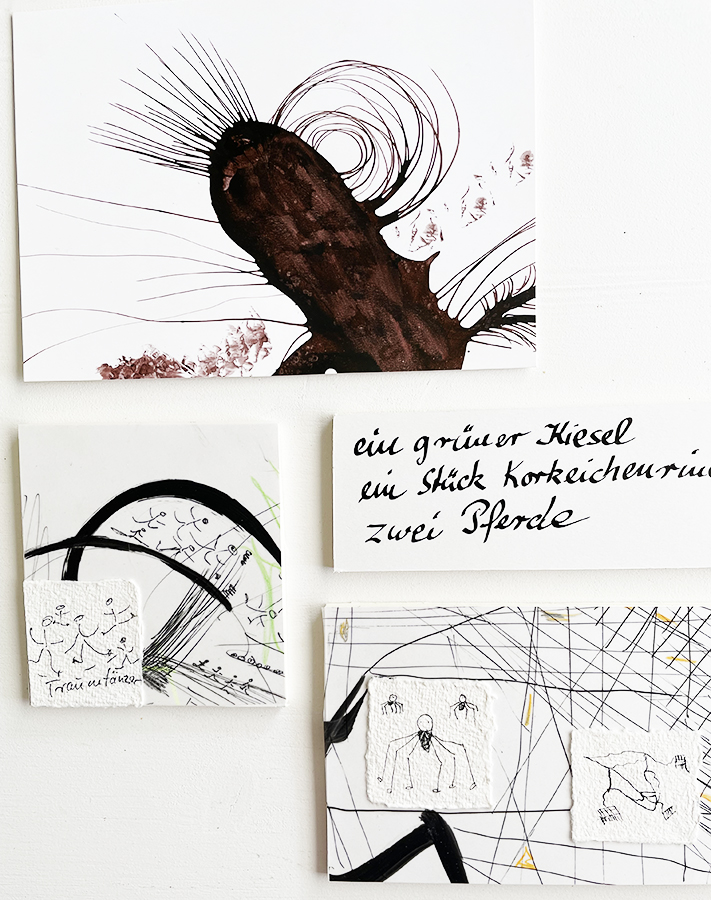 ein grüner Kiesel
ein Stück Korkeichenrin
zwei Pferde
Traumtänzer